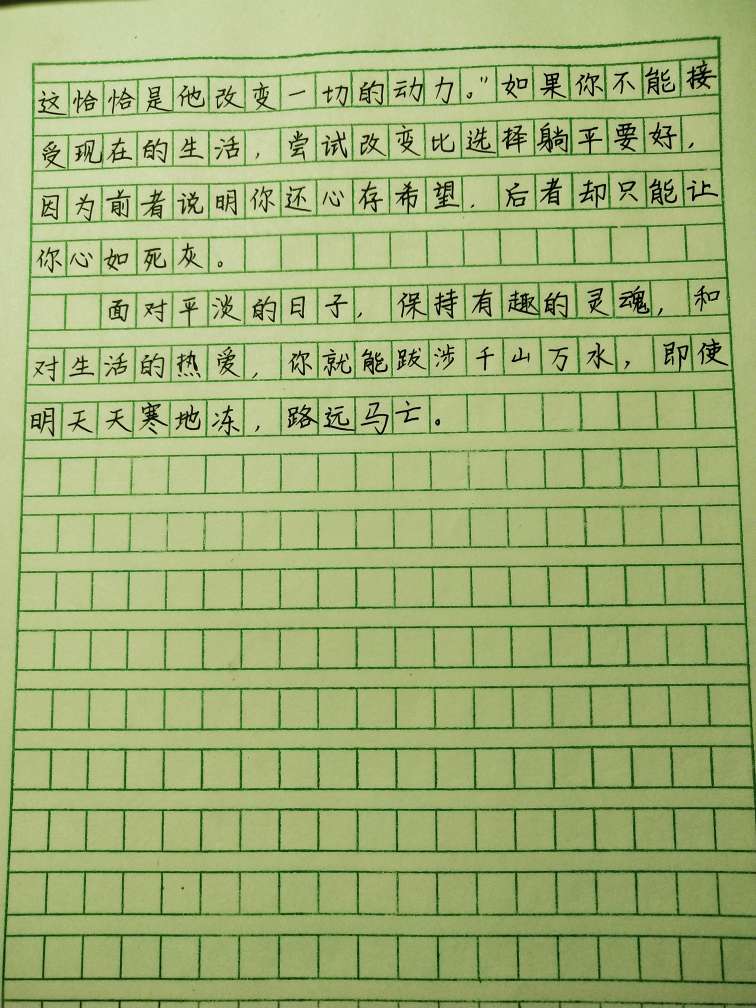 这恰恰是他改变一切的动力。”如果你不能接
受现在的生活，尝试改变比选择躺平要好，
因为前者说明你还心存希望，后者却只能让
你心如死灰。
面对平淡的日子，保持有趣的灵魂，和
对生活的热爱，你就能跋涉千山万水，即使
明天天寒地冻，路远马亡。